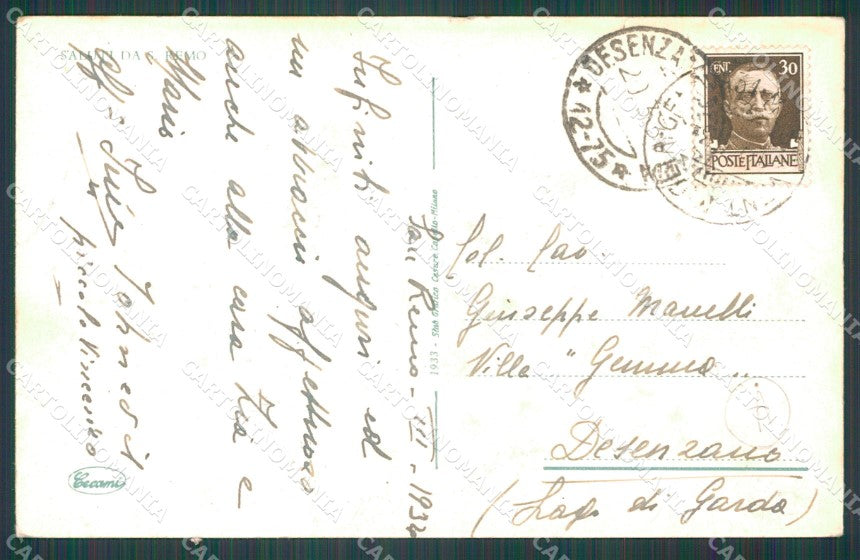 SALUTI DA S. REMO
San Remo - III - 1934
Infiniti auguri ed
un abbraccio affettuoso
anche alla cara Zia e
Mario
piccolo Vincenzo
Cecami
1933 - Stab. Grafico Cesare Capello - Milano
DESENZA
12-75
CENT 30
POSTE ITALIANE
Col. Cav
Giuseppe Manelli
Villa "Gemma"
Desenzano
(Lago di Garda)
CARTOLINOMANIA